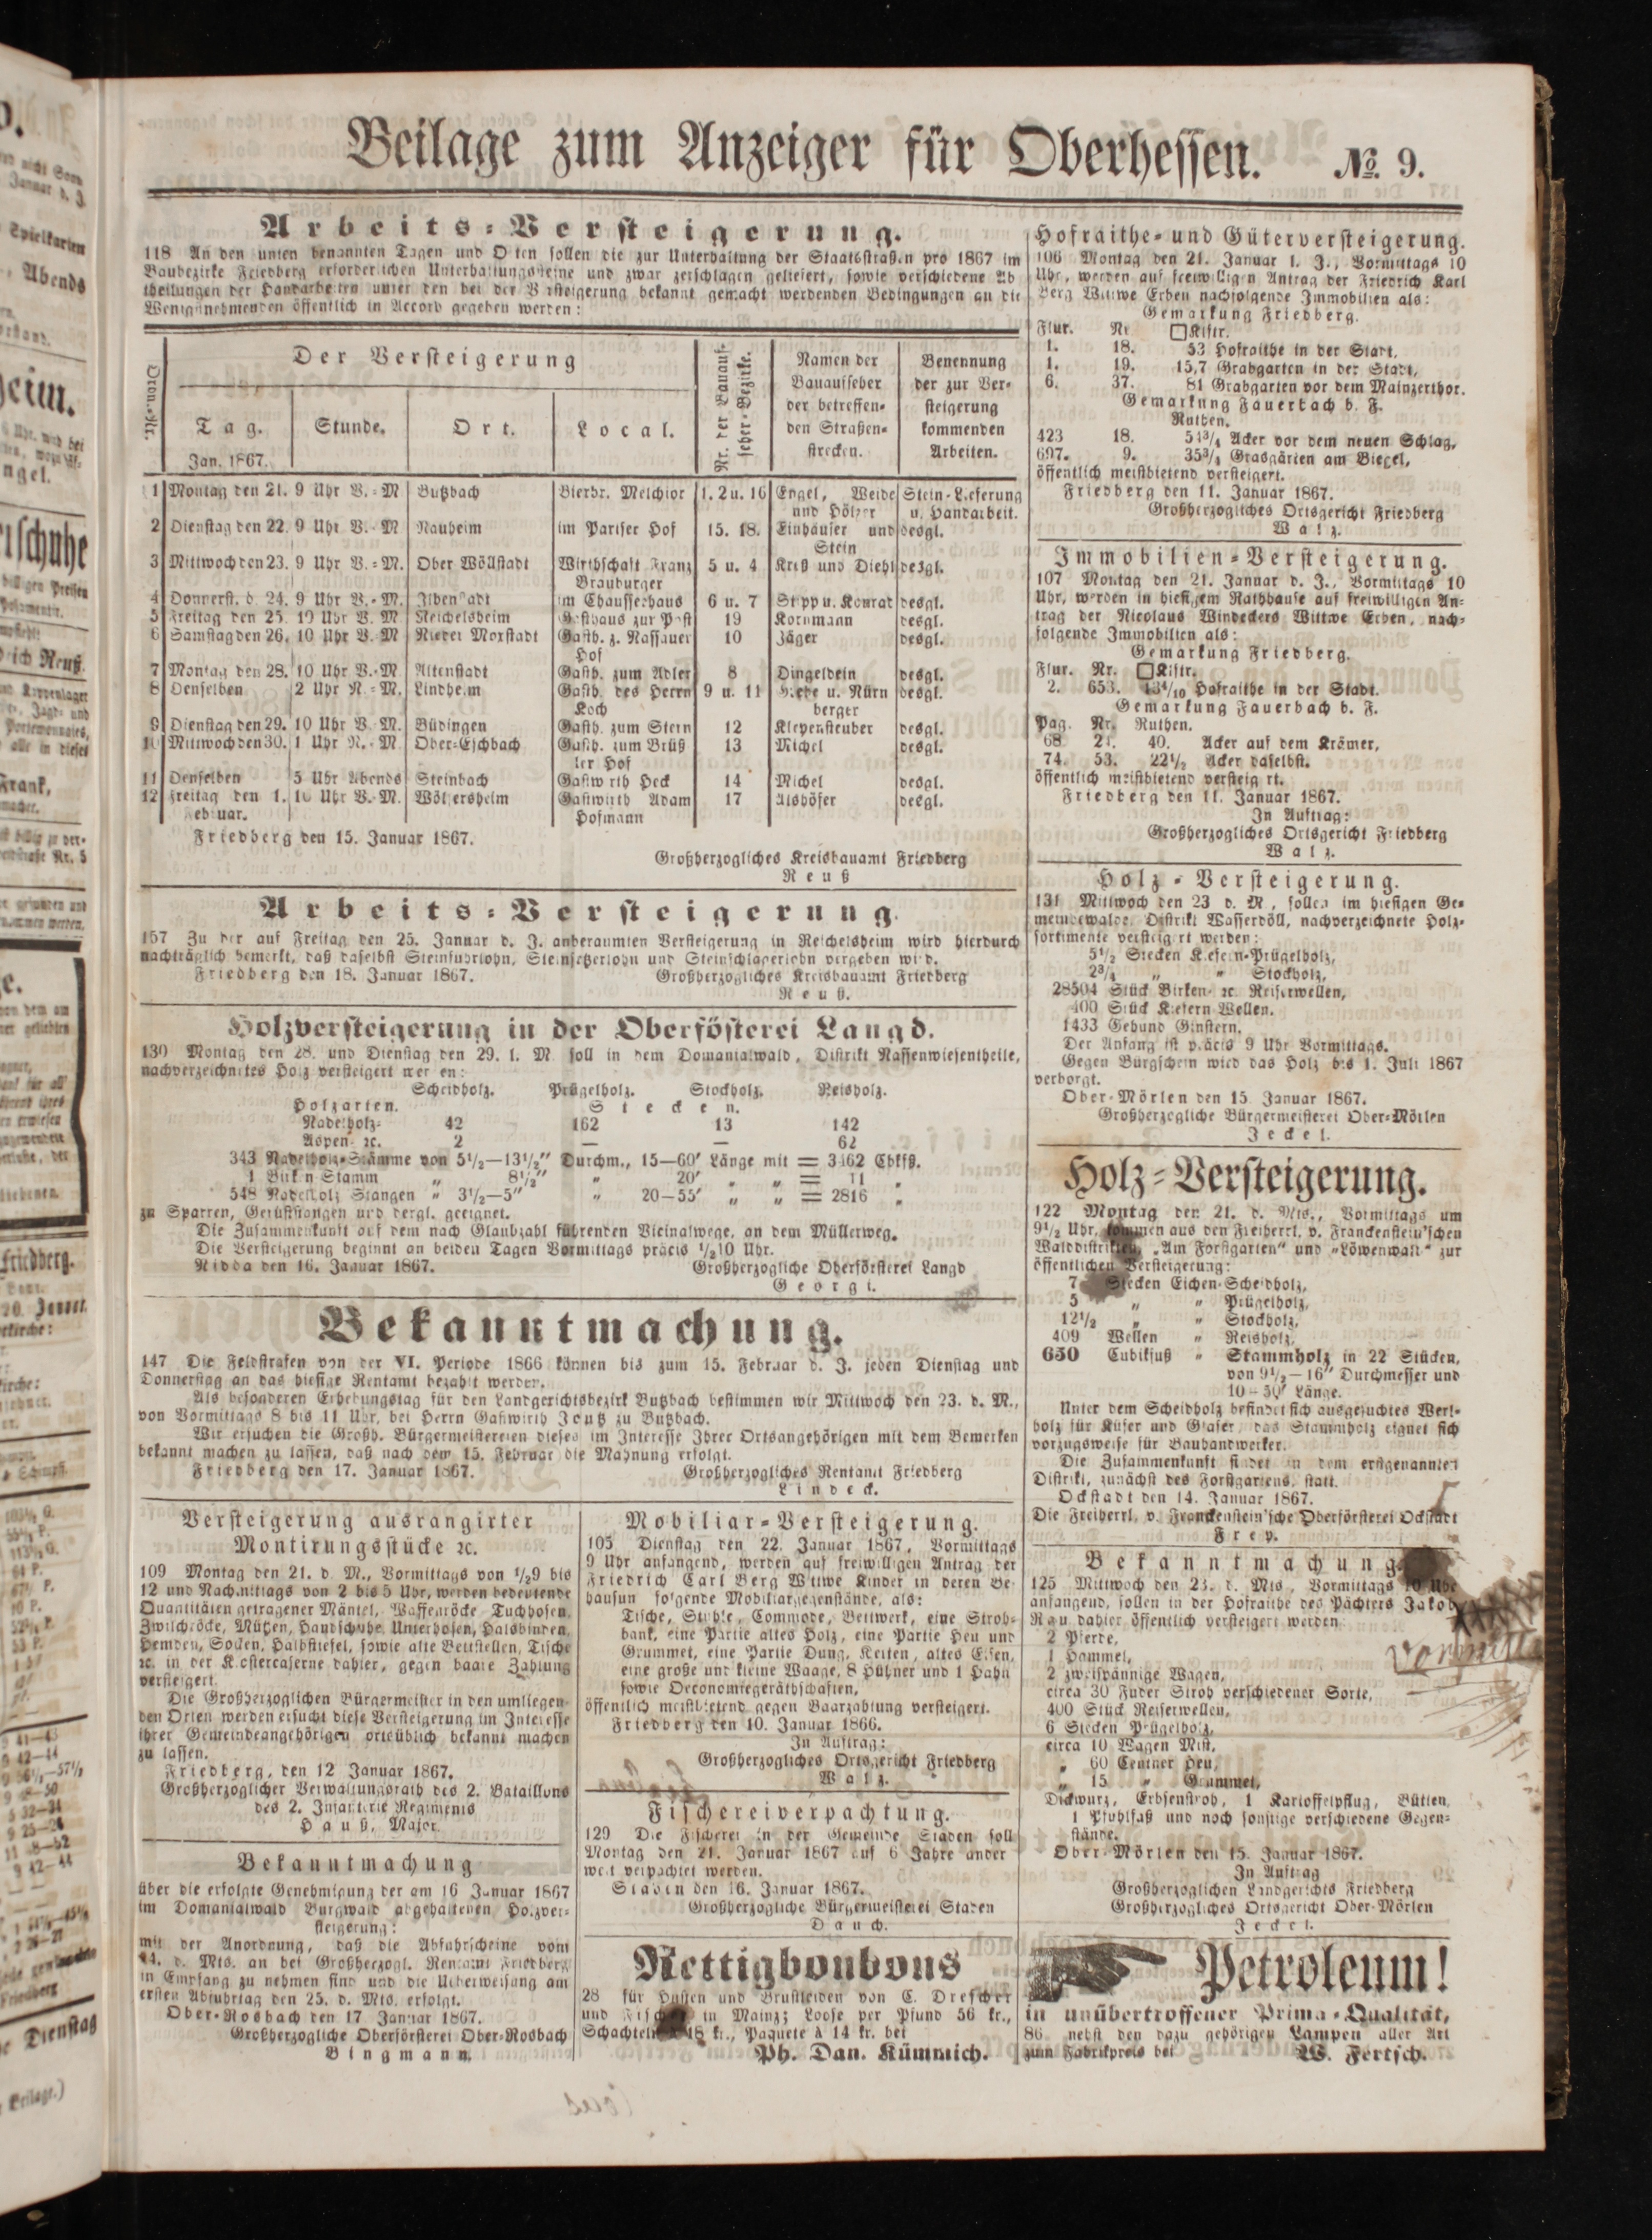 Beilage zum Anzeiger für Oberhessen. № 9.
Arbeits-Versteigerung.
118 An den unten benannten Tagen und Orten sollen die zur Unterhaltung der Staatsstraßen pro 1867 im
Baubezirke Friedberg erforderlichen Unterhaltungssteine und zwar zerschlagen geliefert, sowie verschiedene Ab
theilungen der Handarbeiten unter den bei der Versteigerung bekannt gemacht werdenden Bedingungen an die
Wenigstnehmenden öffentlich in Accord gegeben werden:
Ordn.-Nr. | Der Versteigerung | Nr. der Bauauf- seher-Bezirke. | Namen der Bauaufseher der betreffen- den Straßen- strecken. | Benennung der zur Ver- steigerung kommenden Arbeiten.
Tag. Jan. 1867. | Stunde. | Ort. | Local.
1 Montag den 21. 9 Uhr V.-M Butzbach Bierbr. Melchior 1. 2 u. 16 Engel, Weide Stein-Lieferung
und Hölzer u. Handarbeit.
2 Dienstag den 22. 9 Uhr V.-M Nauheim im Pariser Hof 15. 18. Einhäuser und desgl.
Stein
3 Mittwoch den 23. 9 Uhr V.-M. Ober Wöllstadt Wirthschaft Franz 5 u. 4 Kreß und Diehl desgl.
Brauburger
4 Donnerst. d. 24. 9 Uhr V.-M. Ilbenstadt im Chausseehaus 6 u. 7 Stppp u. Konrad desgl.
5 Freitag den 25. 10 Uhr V.-M Reichelsheim Gasthaus zur Post 19 Kornmann desgl.
6 Samstag den 26. 10 Uhr V.-M Nieder Morstadt Gasth. z. Nassauer 10 Jäger desgl.
Hof
7 Montag den 28. 10 Uhr V.-M Altenstadt Gasth. zum Adler 8 Dingeldein desgl.
8 Denselben 2 Uhr N.-M. Lindheim Gasth. des Herrn 9 u. 11 u. Nürn desgl.
Koch berger
9 Dienstag den 29. 10 Uhr V.-M. Büdingen Gasth. zum Stern 12 Klepensteuber desgl.
10 Mittwoch den 30. 1 Uhr N.-M Ober-Eschbach Gasth. zum Brüß 13 Michel desgl.
ler Hof
11 Denselben 5 Uhr Abends Steinbach Gastwirth Heck 14 Michel desgl.
12 Freitag den 1. 10 Uhr V.-M. Wölfersheim Gastwirth Adam 17 Alshöfer desgl.
Februar. Hofmann
Friedberg den 15. Januar 1867.
Großherzogliches Kreisbauamt Friedberg
Reuß
Arbeits-Versteigerung.
157 Zu der auf Freitag den 25. Januar d. J. anberaumten Versteigerung in Reichelsheim wird hierdurch
nachträglich bemerkt, daß daselbst Steinfuhrlohn, Steinsetzerlohn und Steinschlagerlohn vergeben wird.
Friedberg den 18. Januar 1867. Großherzogliches Kreisbauamt Friedberg
Reuß.
Holzversteigerung in der Oberförsterei Langd.
130 Montag den 28. und Dienstag den 29. l. M. soll in dem Domanialwald, Distrikt Nassenwiesentheile,
nachverzeichnetes Holz versteigert werden:
Scheidholz. Prügelholz. Stockholz. Reisholz.
Holzarten. Stecken.
Nadelholz- 42 162 13 142
Aspen- ꝛc. 2 — — 62
343 Nadelholz-Stämme von 5½—13½″ Durchm., 15—60′ Länge mit = 3462 Cbkfß.
1 Birken Stamm „ 8½″ „ 20′ „ „ = 11 „
548 Nadelholz Stangen „ 3½—5″ „ 20—55′ „ „ = 2816 „
zu Sparren, Gerüststangen und dergl. geeignet.
Die Zusammenkunft auf dem nach Glaubzahl führenden Vicinalwege, an dem Müllerweg.
Die Versteigerung beginnt an beiden Tagen Vormittags präcis ½10 Uhr.
Nidda den 16. Januar 1867. Großherzogliche Oberförsterei Langd
Georgi.
Bekanntmachung.
147 Die Feldstrafen von der VI. Periode 1866 können bis zum 15. Februar d. J. jeden Dienstag und
Donnerstag an das hiesige Rentamt bezahlt werden.
Als besonderen Erhebungstag für den Landgerichtsbezirk Butzbach bestimmen wir Mittwoch den 23. d. M.,
von Vormittags 8 bis 11 Uhr, bei Herrn Gastwirth Joutz zu Butzbach.
Wir ersuchen die Großh. Bürgermeistereien dieses im Interesse Ihrer Ortsangehörigen mit dem Bemerken
bekannt machen zu lassen, daß nach dem 15. Februar die Mahnung erfolgt.
Friedberg den 17. Januar 1867. Großherzogliches Rentamt Friedberg
Lindeck.
Versteigerung ausrangirter
Montirungsstücke ꝛc.
109 Montag den 21. d. M., Vormittags von ½9 bis
12 und Nachmittags von 2 bis 5 Uhr, werden bedeutende
Quantitäten getragener Mäntel, Waffenröcke, Tuchhosen,
Zwilchröcke, Mützen, Handschuhe, Unterhosen, Halsbinden,
Hemden, Socken, Halbstiefel, sowie alte Bettstellen, Tische
ꝛc. in der Klostercaserne dahier, gegen baare Zahlung
versteigert.
Die Großherzoglichen Bürgermeister in den umliegen-
den Orten werden ersucht diese Versteigerung im Interesse
ihrer Gemeindeangehörigen ortsüblich bekannt machen
zu lassen.
Friedberg, den 12 Januar 1867.
Großherzoglicher Verwaltungsrath des 2. Bataillons
des 2. Infanterie Regiments
Hauß, Major.
Bekanntmachung
über die erfolgte Genehmigung der am 16 Januar 1867
im Domanialwald Burgwald abgehaltenen Holzver-
steigerung:
mit der Anordnung, daß die Abfahrscheine vom
24. d. Mts. an bei Großherzogl. Rentamt Friedberg
in Empfang zu nehmen sind und die Ueberweisung am
ersten Abfuhrtag den 25. d. Mts. erfolgt.
Ober-Rosbach den 17 Januar 1867.
Großherzogliche Oberförsterei Ober-Rosbach
Bingmann.
Mobiliar-Versteigerung.
105 Dienstag den 22. Januar 1867, Vormittags
9 Uhr anfangend, werden auf freiwilligen Antrag der
Friedrich Carl Berg Wittwe Kinder in deren Be-
hausun folgende Mobiliargegenstände, als:
Tische, Stühle, Commode, Bettwerk, eine Stroh-
bank, eine Partie altes Holz, eine Partie Heu und
Grummet, eine Partie Dung, Ketten, altes Eisen,
eine große und kleine Waage, 8 Hühner und 1 Hahn
sowie Oeconomiegeräthschaften,
öffentlich meistbietend gegen Baarzahlung versteigert.
Friedberg den 10. Januar 1866.
In Auftrag:
Großherzogliches Ortsgericht Friedberg
Walz.
Fischereiverpachtung.
129 Die Fischerei in der Gemeinde Staden soll
Montag den 21. Januar 1867 auf 6 Jahre ander
weit verpachtet werden.
Staden den 16. Januar 1867.
Großherzogliche Bürgermeisterei Staden
Dauch.
Rettigbonbons
28 für Husten und Brustleiden von C. Drescher
und Fischer in Mainz; Loose per Pfund 56 kr.,
Schachteln à 18 kr., Paquete à 14 kr. bei
Ph. Dan. Kümmich.
Hofraithe- und Güterversteigerung.
106 Montag den 21. Januar l. J., Vormittags 10
Uhr, werden auf freiwilligen Antrag der Friedrich Karl
Berg Wittwe Erben nachfolgende Immobilien als:
Gemarkung Friedberg.
Flur. Nr. □Klftr.
1. 18. 53 Hofraithe in der Stadt,
1. 19. 15,7 Grabgarten in der Stadt,
6. 37. 81 Grabgarten vor dem Mainzerthor.
Gemarkung Fauerbach b. F.
Ruthen.
423 18. 51¾ Acker vor dem neuen Schlag,
697. 9. 35¾ Grasgärten am Biegel,
öffentlich meistbietend versteigert.
Friedberg den 11. Januar 1867.
Großherzogliches Ortsgericht Friedberg
Walz.
Immobilien-Versteigerung.
107 Montag den 21. Januar d. J., Vormittags 10
Uhr, werden in hiesigem Rathhause auf freiwilligen An-
trag der Nicolaus Windeckers Wittwe Erben, nach-
folgende Immobilien als:
Gemarkung Friedberg.
Flur. Nr. □Klftr.
2. 653. 13⁴/₁₀ Hofraithe in der Stadt.
Gemarkung Fauerbach b. F.
Pag. Nr. Ruthen.
68 21. 40. Acker auf dem Krämer,
74. 53. 22½ Acker daselbst.
öffentlich meistbietend versteigert.
Friedberg den 11. Januar 1867.
In Auftrag:
Großherzogliches Ortsgericht Friedberg
Walz.
Holz-Versteigerung.
131 Mittwoch den 23 d. M, sollen im hiesigen Ge-
meindewalde Distrikt Wasserdöll, nachverzeichnete Holz-
sortimente versteigert werden:
5½ Stecken Kiefern-Prügelholz,
2¾ „ „ Stockholz,
28504 Stück Birken- ꝛc. Reiserwellen,
400 Stück Kiefern Wellen.
1433 Gebund Ginstern.
Der Anfang ist präcis 9 Uhr Vormittags.
Gegen Bürgschein wird das Holz bis 1. Juli 1867
verborgt.
Ober-Mörlen den 15 Januar 1867.
Großherzogliche Bürgermeisterei Ober-Mörlen
Jeckel.
Holz-Versteigerung.
122 Montag den 21. d. Mts., Vormittags um
9½ Uhr, kommen aus den Freiherrl. v. Franckenstein'schen
Walddistrikten, „Am Forstgarten“ und „Löwenwalt“ zur
öffentlichen Versteigerung:
7 Stecken Eichen-Scheidholz,
5 „ „ Prügelholz,
12½ „ „ Stockholz,
409 Wellen „ Reisholz,
650 Cubikfuß „ Stammholz in 22 Stücken,
von 9½—16″ Durchmesser und
10—50′ Länge.
Unter dem Scheidholz befindet sich ausgesuchtes Werk-
holz für Küfer und Glaser, das Stammholz eignet sich
vorzugsweise für Bauhandwerker.
Die Zusammenkunft findet in dem erstgenannten
Distrikt, zunächst des Forstgartens, statt.
Ockstadt den 14. Januar 1867.
Die Freiherrl. v. Franckenstein'sche Oberförsterei Ockstadt
Frey.
Bekanntmachung
125 Mittwoch den 23. d. Mts, Vormittags 10 Uhr
anfangend, sollen in der Hofraithe des Pächters Jakob
Rau dahier öffentlich versteigert werden
2 Pferde,
1 Hammel,
2 zweispännige Wagen,
circa 30 Fuder Stroh verschiedener Sorte,
400 Stück Reiserwellen,
6 Stecken Prügelholz,
circa 10 Wagen Mist,
„ 60 Centner Heu,
„ 15 „ Grummet,
Dickwurz, Erbsenstroh, 1 Kartoffelpflug, Bütten,
1 Pfuhlfaß und noch sonstige verschiedene Gegen-
stände.
Ober-Mörlen den 15. Januar 1867.
In Auftrag
Großherzoglichen Landgerichts Friedberg
Großherzogliches Ortsgericht Ober-Mörlen
Jeckel.
Petroleum!
in unübertroffener Prima-Qualität,
86 nebst den dazu gehörigen Lampen aller Art
zum Fabrikpreis bei W. Fertsch.